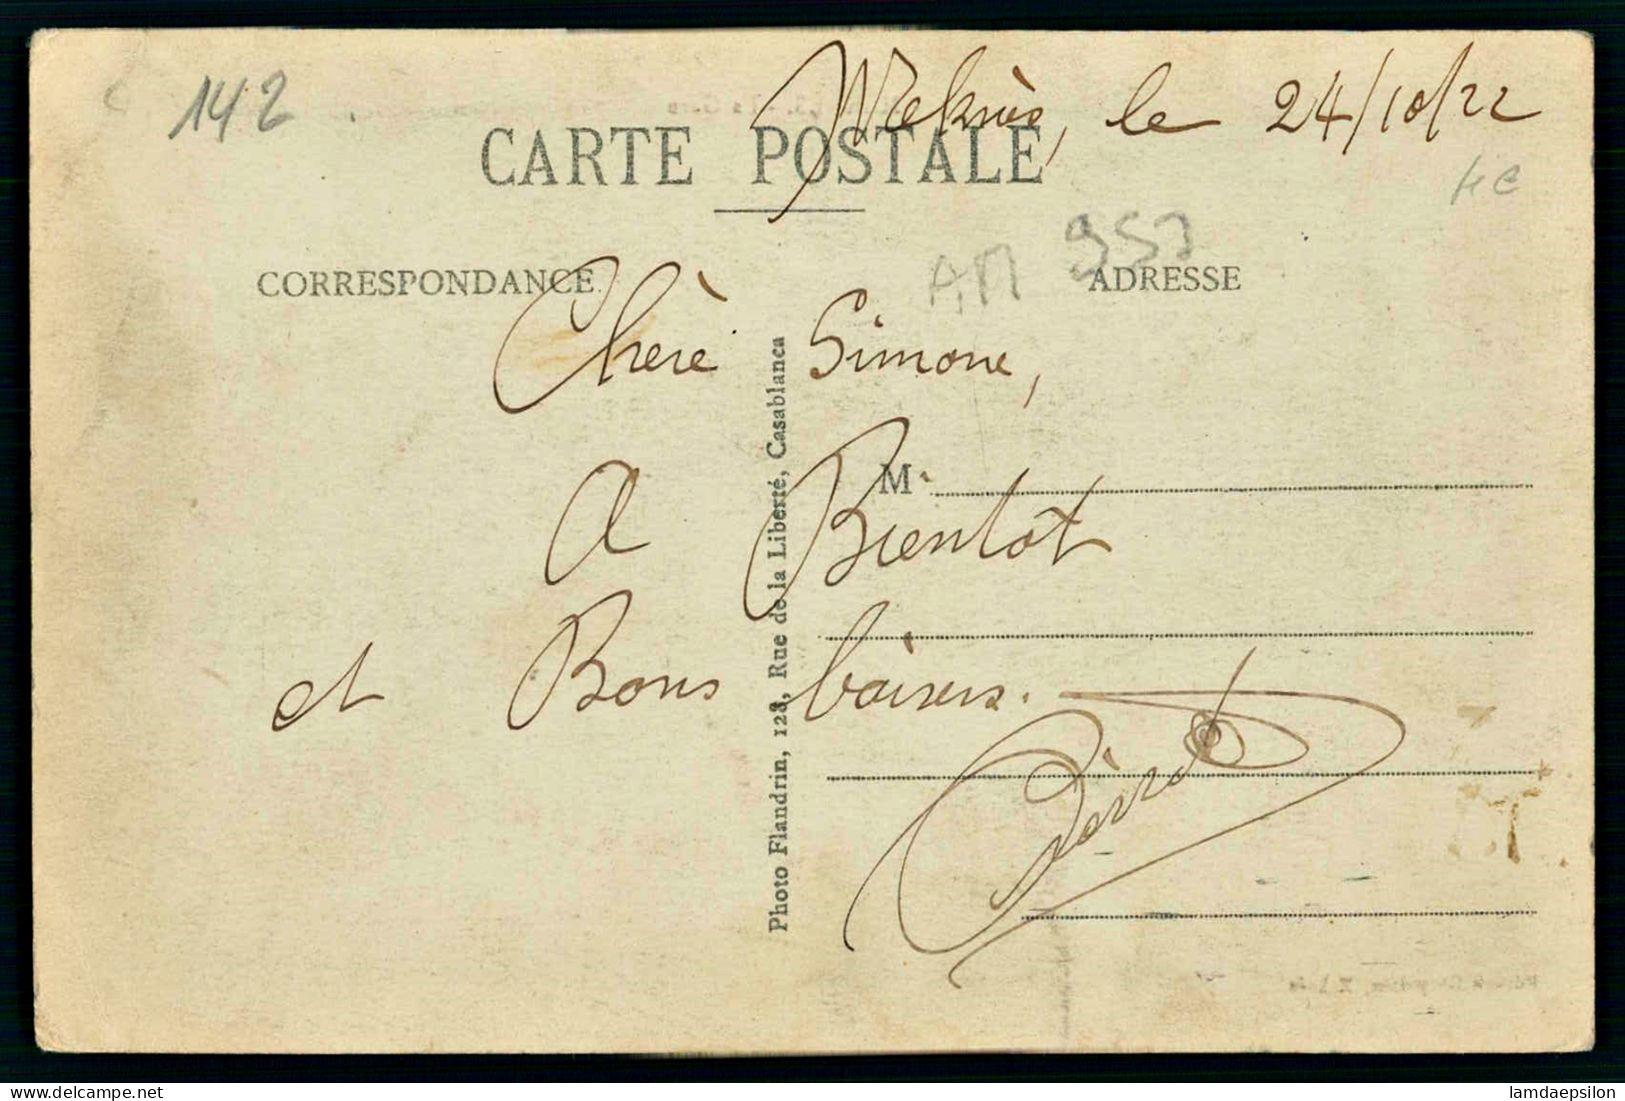 142
Meknès, le 24/10/22
CARTE POSTALE
AM 953
CORRESPONDANCE
ADRESSE
Chère Simone,
M
A Bientôt
et Bons baisers.
Photo Flandrin, 128, Rue de la Liberté, Casablanca
delcampe.net
lamdaepsilon